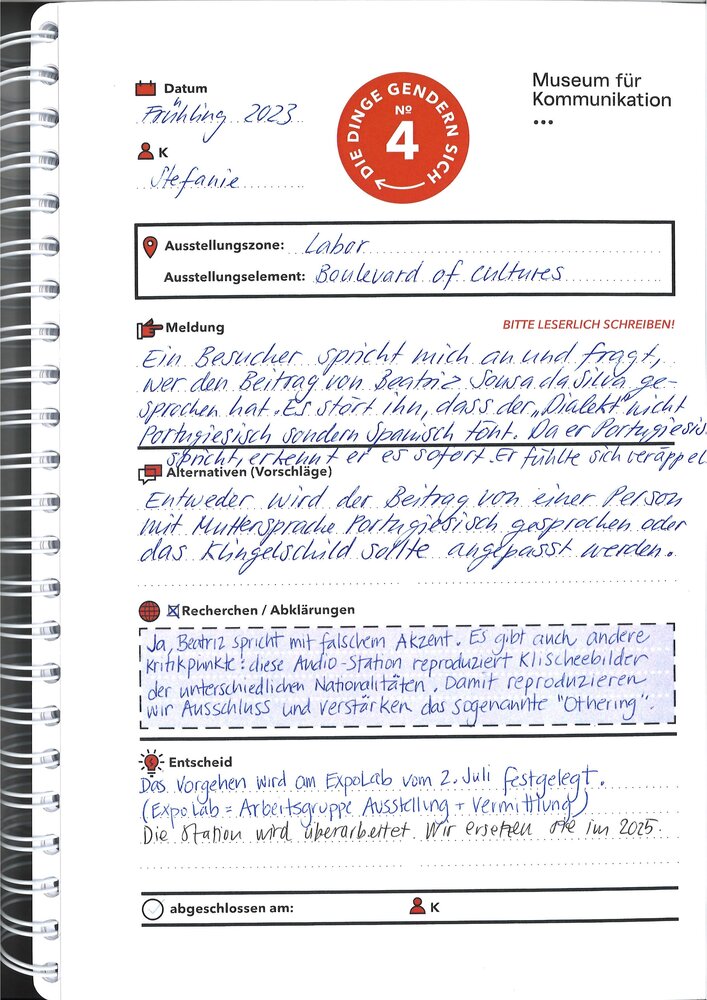 Datum
Frühling 2023
K
Stefanie
DIE DINGE GENDERN SICH
No
4
Museum für
Kommunikation
...
Ausstellungszone: Labor
Ausstellungselement: Boulevard of cultures
Meldung
BITTE LESERLICH SCHREIBEN!
Ein Besucher spricht mich an und fragt,
wer den Beitrag von Beatriz Sousa da Silva ge-
sprochen hat. Es stört ihn, dass der „Dialekt" nicht
Portugiesisch sondern Spanisch tönt. Da er Portugiesis
spricht, erkennt er es sofort. Er fühlte sich veräppel
Alternativen (Vorschläge)
Entweder wird der Beitrag von einer Person
mit Muttersprache Portugiesisch gesprochen oder
das Klingelschild sollte angepasst werden.
Recherchen / Abklärungen
Ja, Beatriz spricht mit falschem Akzent. Es gibt auch andere
Kritikpunkte: diese Audio-Station reproduziert Klischeebilder
der unterschiedlichen Nationalitäten. Damit reproduzieren
wir Ausschluss und verstärken das sogenannte "Othering".
Entscheid
Das Vorgehen wird am ExpoLab vom 2. Juli festgelegt.
(ExpoLab = Arbeitsgruppe Ausstellung + Vermittlung)
Die Station wird überarbeitet. Wir ersetzen sie im 2025.
abgeschlossen am:
K